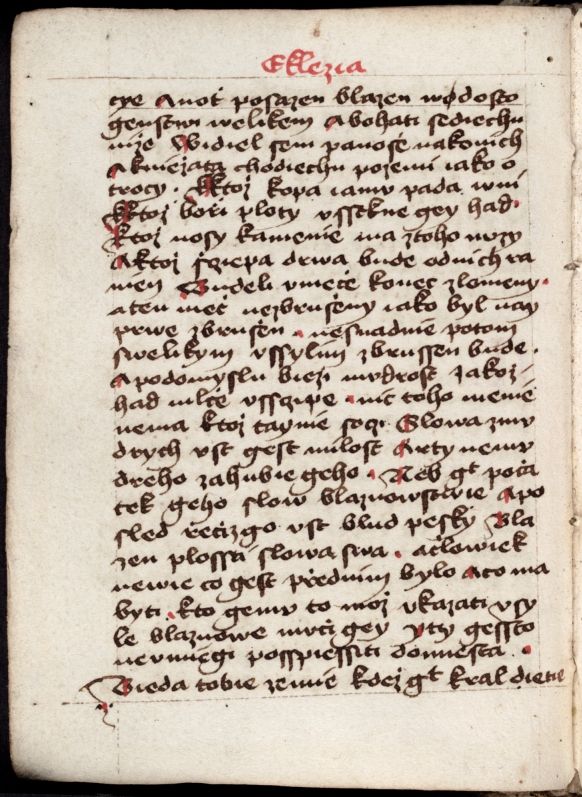 Eklezia
cye Anot posazen blazen wdosto
genstwi welikem Abohati sediechu
nize Widiel sem panose nakonich
Akniezata chodiechu pozemi iako o
trocy . Ktoz kopa iamu pada wni
Ktoz bori ploty vsstkne gey had .
ktoz nosy kamenie ma ztoho urzy
Aktoz sczepa drwa bude odnich ra
nien Budeli umece konec zlomeny .
aten mec nezbruseny iako byl nay
prwe zbrusen . nesnadnie potom
swelikym vssylim zbrussen bude .
Apodomyslu biezi mudrost Jakoz
had mlce vssczipe . nic toho menie
nema ktoz taynie soczi Slowa mu
drych vst gest milost Arty nemu
dreho zahubie geho . Neb gt pocza
tek geho slow blaznowstwie Apo
sled recizgo vst blud pesky Bla
zen plossti slowa swa . aclowiek
newie co gest prednim bylo Aco ma
byti . kto gemu to moz vkazati vsy
le blaznowe mrci gey Yty gessto
neumiegi posspiessiti domiesta .
Bieda tobie zemie kdez gt kral dietie